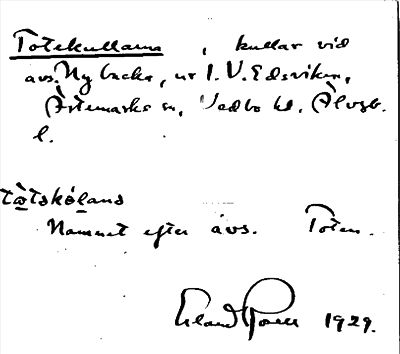 Totekullarna, kullar vid
avs. Nybacka, nr 1. V. Edsviken,
Ärtemarks sn, Vedbo hd, Älvsb.
l.
tòtskéḷans
Namnet efter avs. Toten.
Erland Rosell 1929.